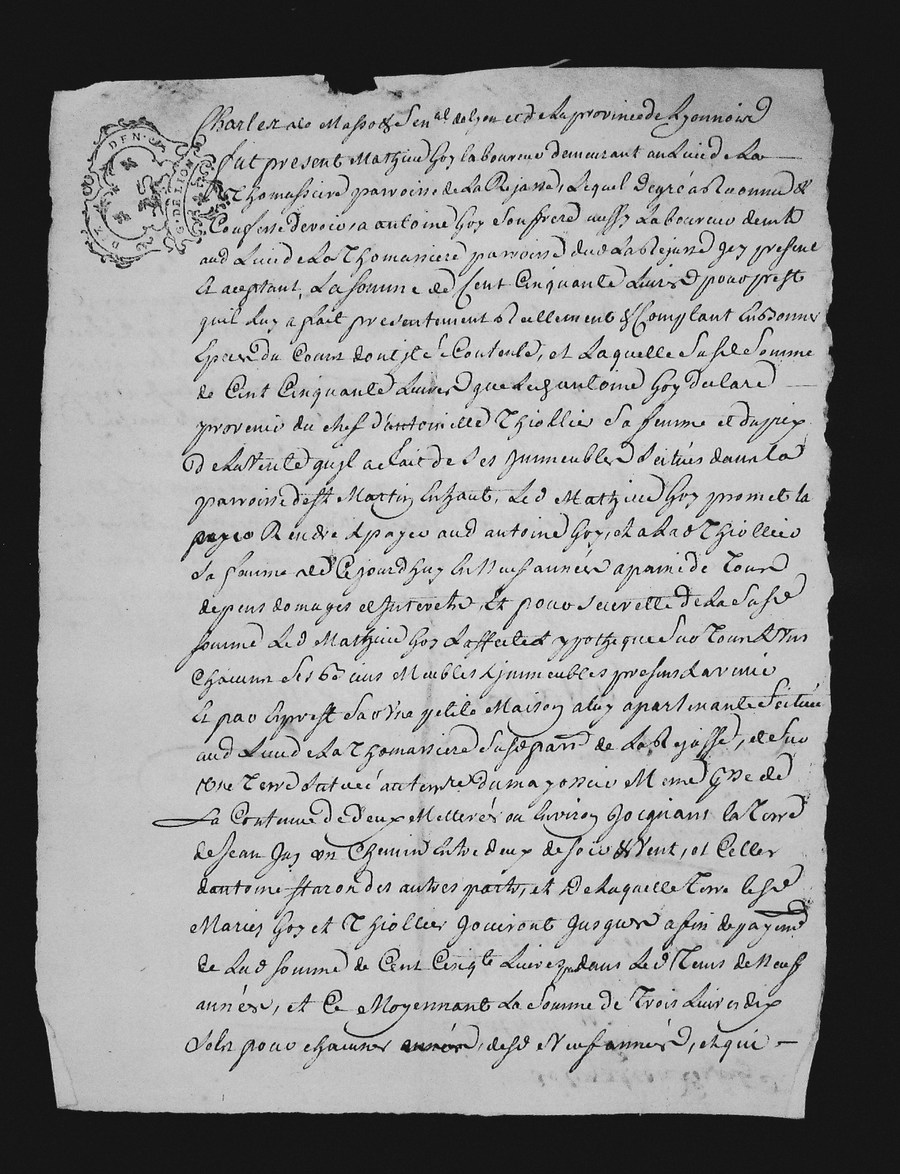 DIX DEN.
G. DE LION
Charles de Masso Sen.al de Lyon et de La province de Lyonnois
fut present Mathieu Goy laboureur demeurant au Lieu de La
Thomassiere parroisse de La Rajasse, Lequel de gré a Reconnu &
Confesse devoir a antoine Goy son frere aussy Laboureur demt
aud Lieu de La Thomassiere parroisse dud La Rejasse icy present
Et aceptant, La somme de Cent Cinquante Livres pour prest
quil luy a fait presentement Reellement & Comptant En bonnes
Especes du Cours dont il se Contente, et Laquelle susd somme
de Cent Cinquante Livres que Led antoine Goy declare
provenir du chef d'antoinette Thiollier sa femme et du prix
De La Vente quil a fait de Ses Jmmeubles Scitués dans La
parroisse de st Martin En haut, Led Mathieu Goy promet la
Rendre & payer aud antoine Goy, et a Lad Thiollier
Sa femme de Cejourdhuy En Neuf années a peine de Tous
depens domages et Jnterets, Et pour seurette de La Susd
somme Led Mathieu Goy La affecte & ypotheque Sur Tous & Uns
Chacuns Ses biens Meubles & jmmeubles presens & avenir
Et par Exprest Sur Une petite Maison a luy apartenante Scituée
aud Lieu de La Thomassiere Susd parr de La Rejasse, et Sur
Une Terre Scituée au terre du mayossier Meme psse de
La Contenue de Deux Metterés ou Environ Jocignant la Terre
de Jean Jus un Chemin Entre deux de soir & Vent, et Celles
dantoine staron des autres parts, et de Laquelle Terre lesd
Mariés Goy et Thiollier Joüiront Jusques a fin de payemt
de Lad somme de Cent Cinqte Livres dans Led Tems de Neuf
années, et Ce Moyennant La Somme de Trois Livres dix
Sols pour chacunes années, desd Neuf années, et qui